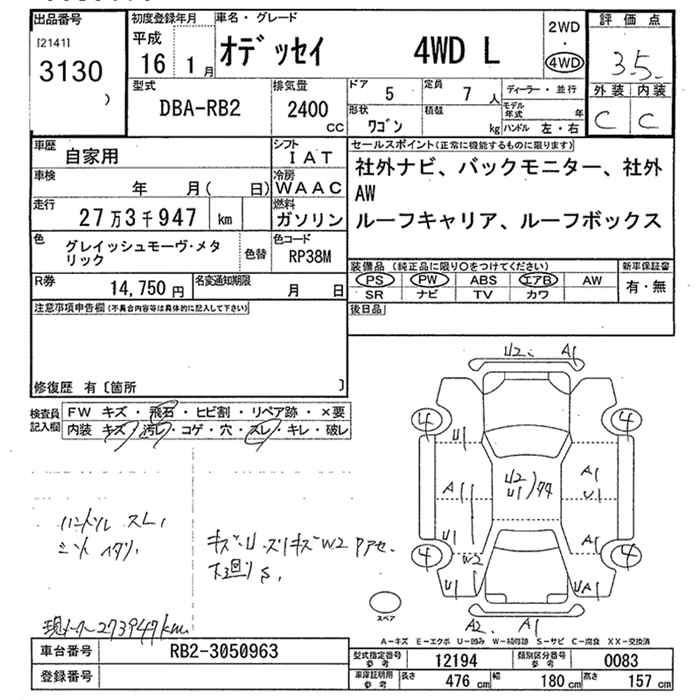 出品番号
[2141]
3130
初度登録年月
平成
16 1月
車名・グレード
オデッセイ 4WD L
2WD
・
4WD
評価点
3.5
外装 内装
C C
型式
DBA-RB2
排気量
2400
cc
ドア 5
定員 7 人
ディーラー・並行
形状
ワゴン
積載
kg
モデル年式 年
ハンドル 左・右
車歴 自家用
シフト
IAT
車検
年 月( 日)
冷房
WAAC
走行
27万3千947 km
燃料
ガソリン
色
グレイッシュモーヴ・メタリック
色替
色コード
RP38M
R券
14,750円
名変通知期限
月 日
セールスポイント(正常に機能するものに限ります)
社外ナビ、バックモニター、社外
AW
ルーフキャリア、ルーフボックス
装備品 (純正品に限り○をつけてください)
PS PW ABS エアB AW
SR ナビ TV カワ
新車保証書
有・無
後日品
注意事項申告欄(不具合内容等は具体的に記入して下さい)
修復歴 有〔箇所 〕
検査員
記入欄
FW キズ・飛石・ヒビ割・リペア跡・×要
内装 キズ・汚レ・コゲ・穴・スレ・キレ・破レ
ハンドル スレ,
キズ・U スリキズW2 Pアセ.
下回りS.
現メーター273947km
U2. A1
4 4
U1
A1
U1
W2
U1
U2
U1
A1
U
A1
UA1
4 4
A2. A1
スペア
A-キズ E-エクボ U-凹み W-補修跡 S-サビ C-腐食 XX-交換済
車台番号 RB2-3050963
登録番号
型式指定番号
参考
12194
類別区分番号
参考
0083
車庫証明用
参考
長さ 476cm 幅 180cm 高さ 157cm